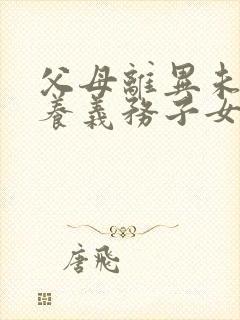 父母離異未
養義務子女
唐飛